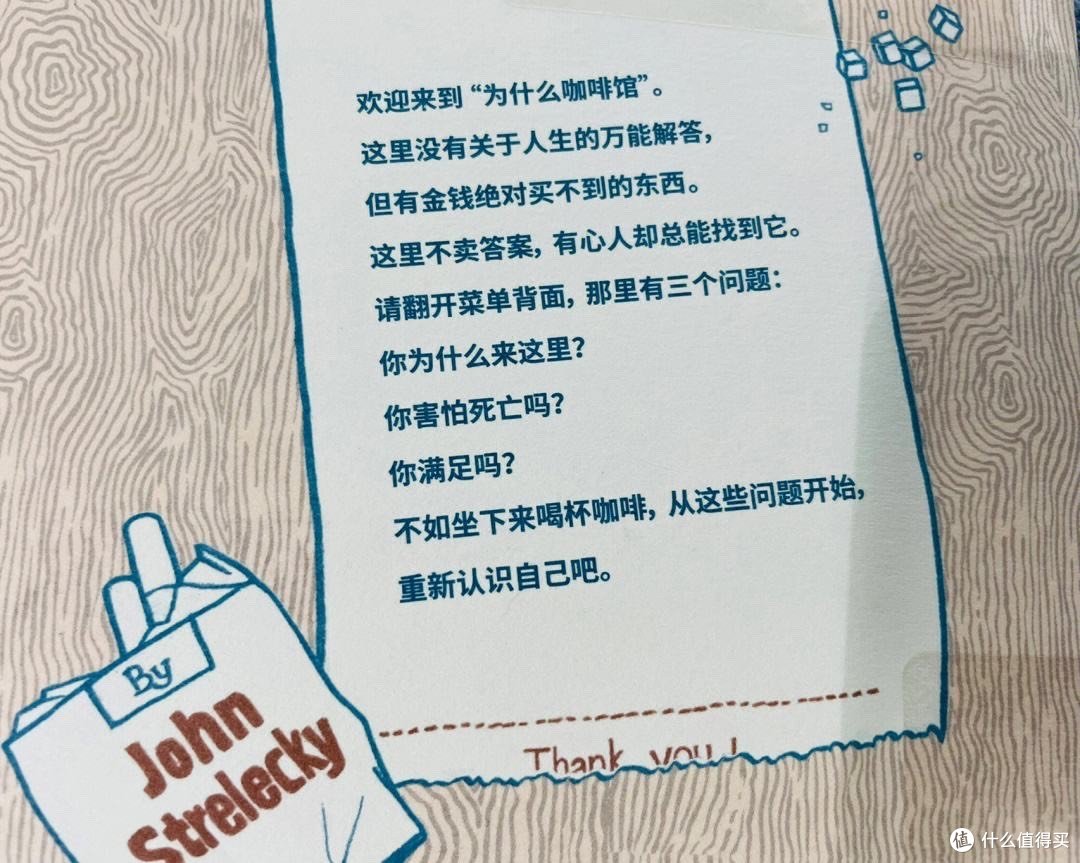 欢迎来到“为什么咖啡馆”。
这里没有关于人生的万能解答,
但有金钱绝对买不到的东西。
这里不卖答案, 有心人却总能找到它。
请翻开菜单背面, 那里有三个问题:
你为什么来这里?
你害怕死亡吗?
你满足吗?
不如坐下来喝杯咖啡, 从这些问题开始,
重新认识自己吧。
Thank you!
By
John
Strelecky
值 什么值得买